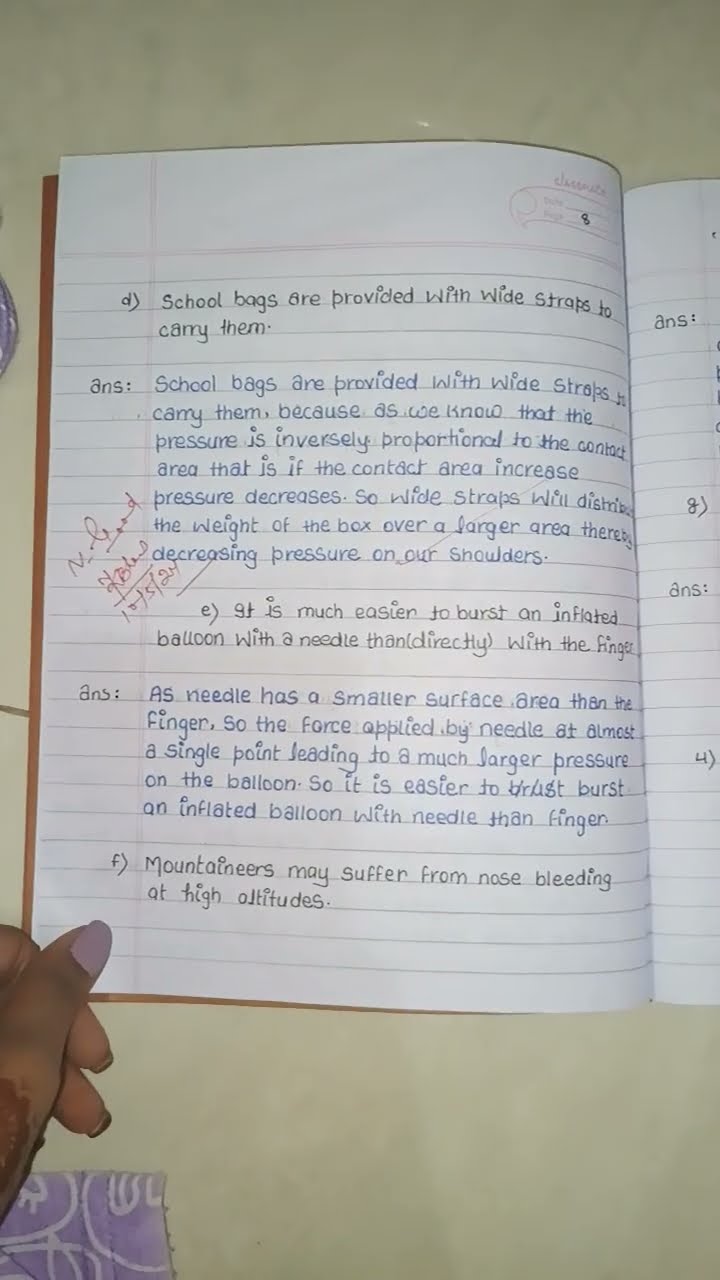 classmate
Date
Page 8
d) School bags are provided with wide straps to
carry them.
ans: School bags are provided with wide straps to
carry them, because as we know that the
pressure is inversely proportional to the contact
area that is if the contact area increase
pressure decreases. So wide straps will distribu
the weight of the box over a larger area thereby
decreasing pressure on our shoulders.
V. Good
10/5/24
e) It is much easier to burst an inflated
balloon with a needle than (directly) with the finger
ans: As needle has a smaller surface area than the
finger, so the force applied by needle at almost
a single point leading to a much larger pressure
on the balloon. So it is easier to burst
an inflated balloon with needle than finger.
f) Mountaineers may suffer from nose bleeding
at high altitudes.
ans:
g)
ans:
4)